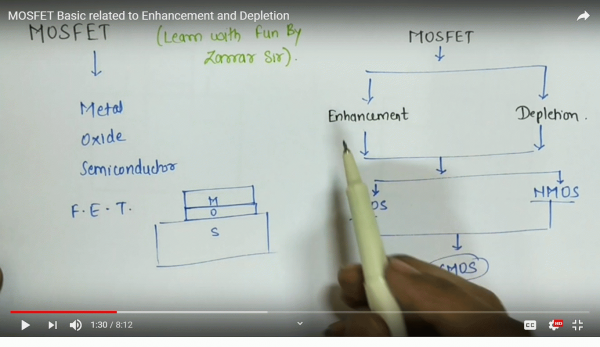 MOSFET Basic related to Enhancement and Depletion
MOSFET
(Learn with Fun By
Zarrar Sir).
Metal
Oxide
Semiconductor
F.E.T.
M
O
S
MOSFET
Enhancement
Depletion.
NMOS
1:30 / 8:12
CC
HD